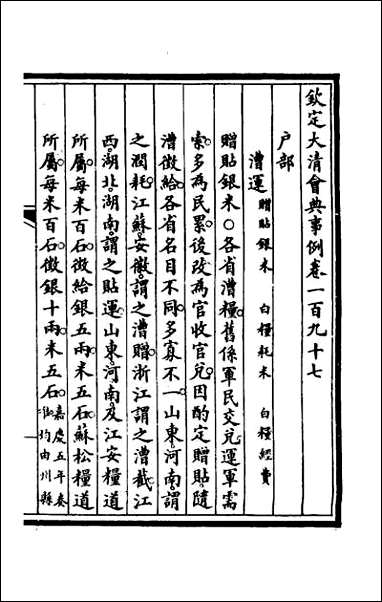 欽定大清會典事例卷一百九十七
户部
漕運 贈貼銀米 白糧耗米 白糧經費
贈貼銀米○各省漕糧舊係軍民交兌運軍需
索多為民累後改為官收官兌因酌定贈貼隨
漕徵給各省名目不同多寡不一山東河南謂
之潤耗江蘇安徽謂之漕贈浙江謂之漕截江
西湖北湖南謂之貼運山東河南及江安糧道
所屬每米百石徵給銀五兩米五石蘇松糧道
所屬每米百石徵銀十兩米五石嘉慶五年奏
均由州縣